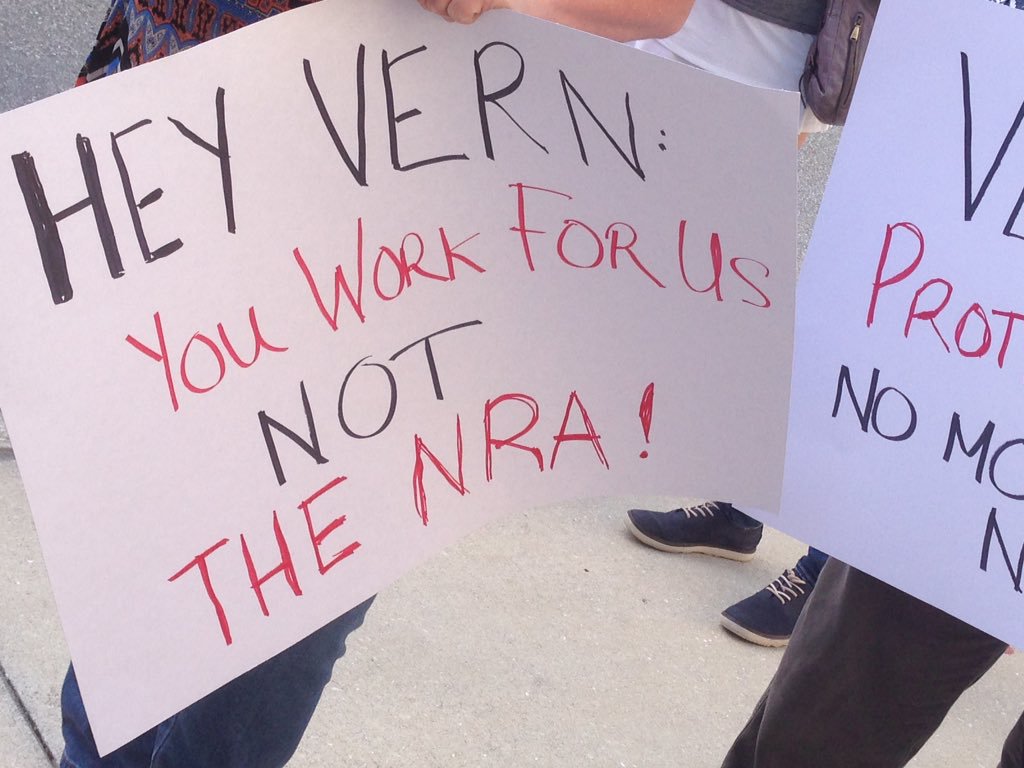 HEY VERN:
YOU WORK FOR US
NOT
THE NRA!
PROT
NO MO